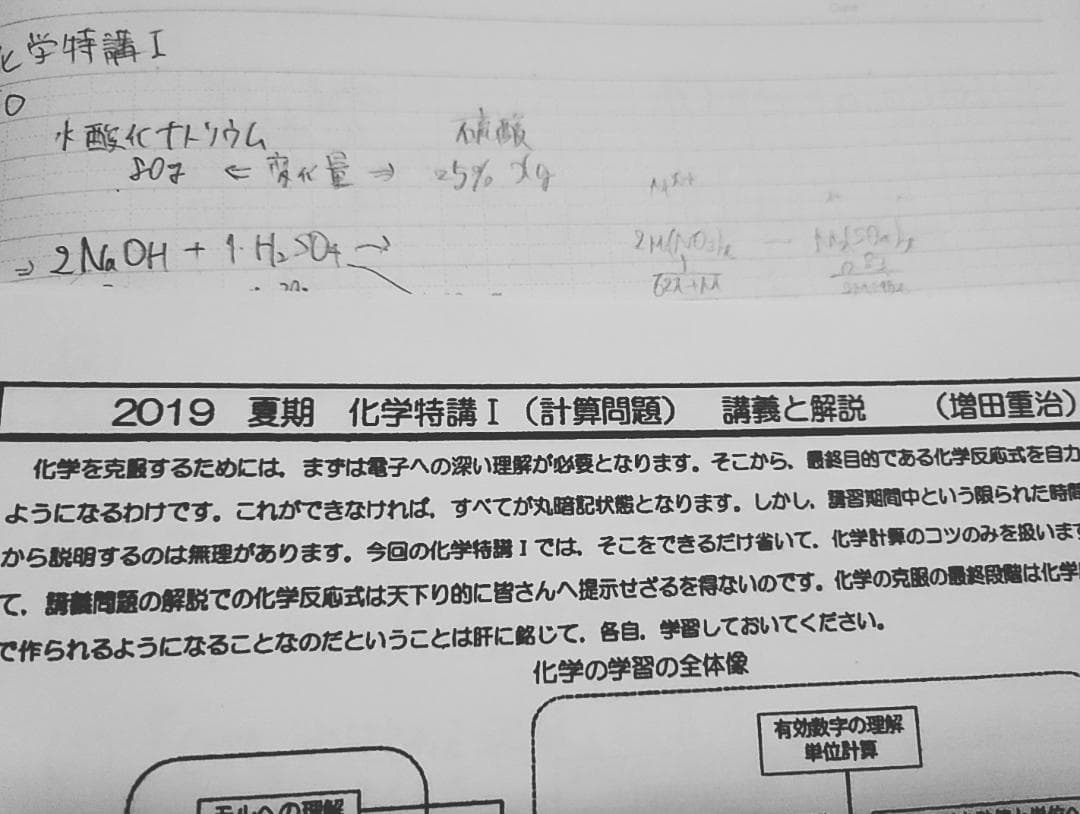 化学特講I
水酸化ナトリウム 硫酸
80g ⇐ 変化量 ⇒ 25% xg
⇒ 2NaOH + 1·H₂SO₄ →
2019 夏期 化学特講Ⅰ（計算問題） 講義と解説 （増田重治）
化学を克服するためには，まずは電子への深い理解が必要となります。そこから，最終目的である化学反応式を自力
ようになるわけです。これができなければ，すべてが丸暗記状態となります。しかし，講習期間中という限られた時間
から説明するのは無理があります。今回の化学特講Ⅰでは，そこをできるだけ省いて，化学計算のコツのみを扱います
て，講義問題の解説での化学反応式は天下り的に皆さんへ提示せざるを得ないのです。化学の克服の最終段階は化学
で作られるようになることなのだということは肝に銘じて，各自，学習しておいてください。
化学の学習の全体像
有効数字の理解
単位計算
モルへの理解